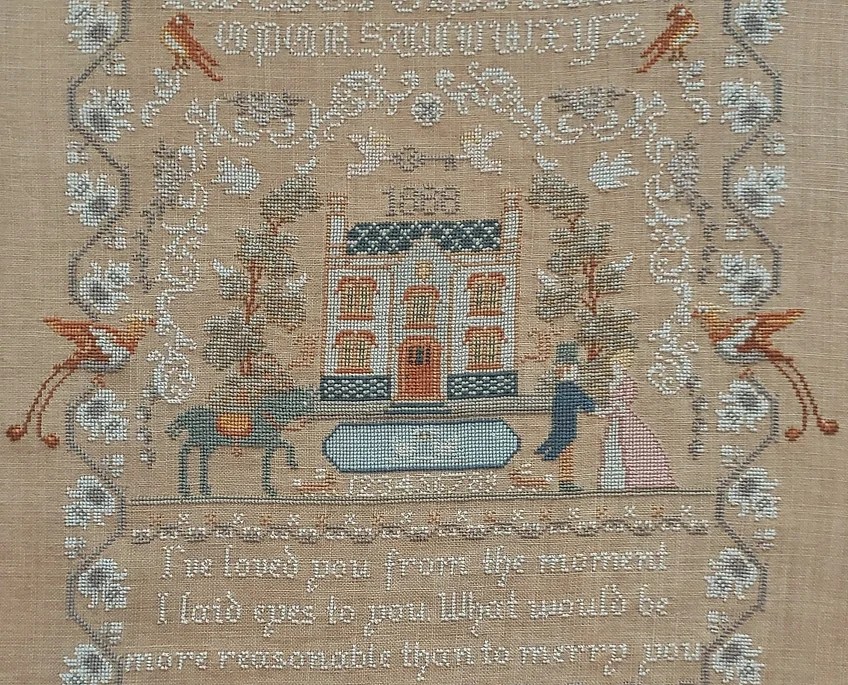 OPQRSTUVWXYZ
1808
123456789
I've loved you from the moment
I laid eyes to you. What would be
more reasonable than to merry you